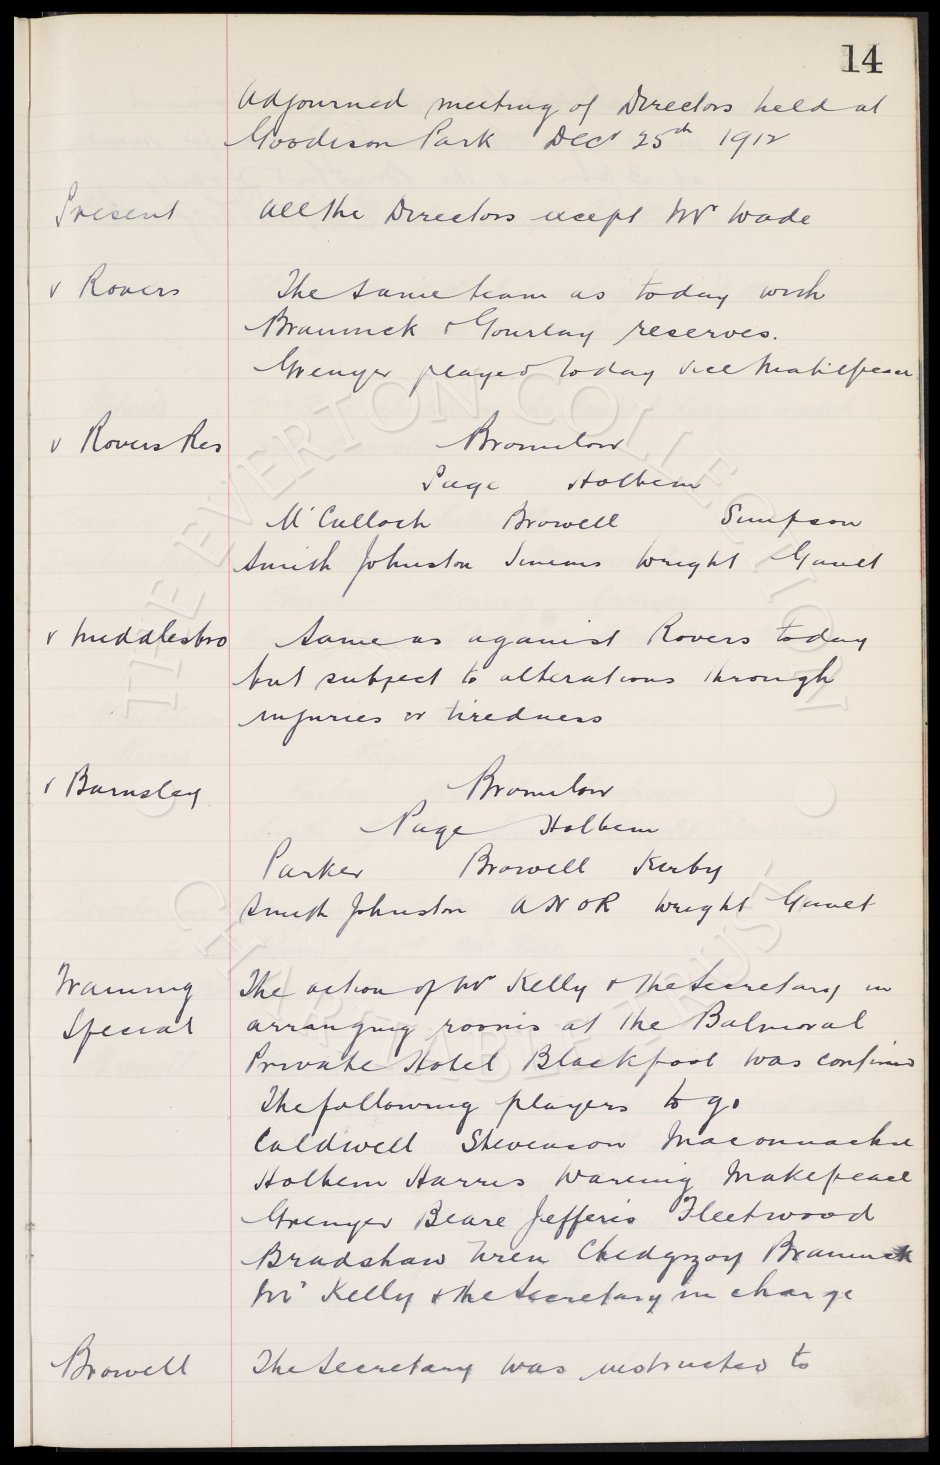 14
Adjourned meeting of Directors held at
Goodison Park Decr 25th 1912
Present All the Directors except Mr Wade
v Rovers The same team as today with
Brannick & Gourlay reserves.
Grenyer played today vice Makepeace
v Rovers Res Bromilow
Page Holbem
McCulloch Browell Simpson
Smith Johnston Simms Wright Gault
v Middlesbro Same as against Rovers today
but subject to alterations through
injuries or tiredness
v Barnsley Bromilow
Page Holbem
Parker Browell Kirby
Smith Johnston A N OR Wright Gault
Training The action of Mr Kelly & the Secretary in
Special arranging rooms at the Balmoral
Private Hotel Blackpool was confirmed
The following players to go
Caldwell Stevenson Maconnachie
Holbem Harris Wareing Makepeace
Grenyer Beare Jefferis Fleetwood
Bradshaw Uren Chedgzoy Brannick
Mr Kelly & the Secretary in charge
Browell The Secretary was instructed to
THE EVERTON COLLECTION
CHARITABLE TRUST